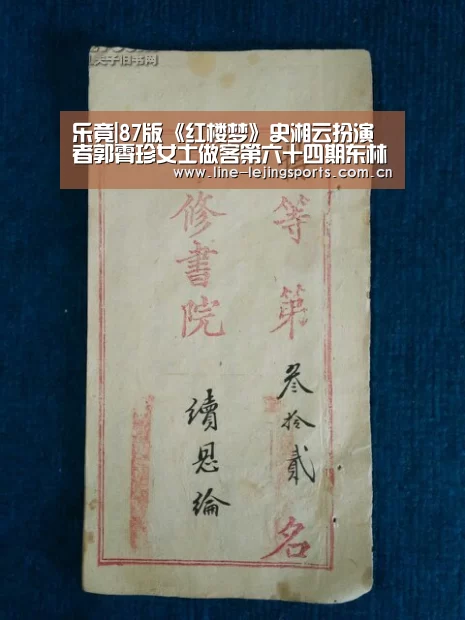 夫子旧书网
乐竟|87版《红楼梦》史湘云扮演
者郭霄珍女士做客第六十四期东林
www.line-lejingsports.com.cn
等第叁拾貳名
修書院
續恩綸